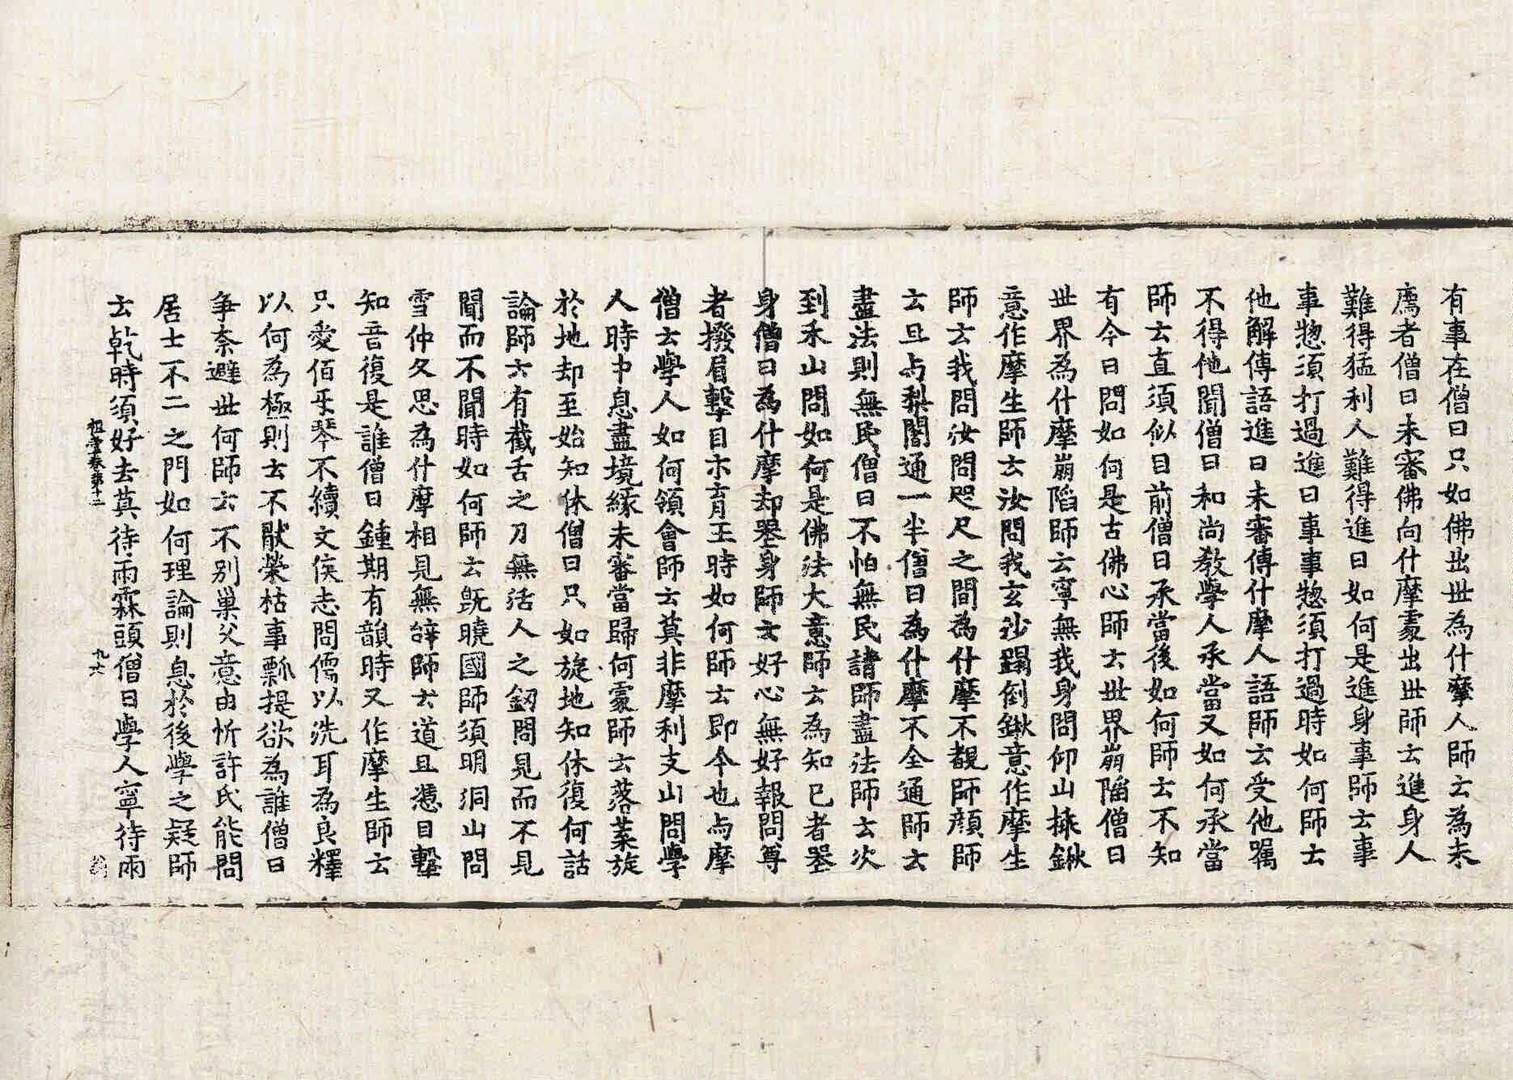 有事在僧曰只如佛出世為什摩人師云為未
鷹者僧曰未審佛向什摩處出世師云進身人
難得猛利人難得進曰如何是進身事師云事
事惣須打過進曰事事惣須打過時如何師云
他解傳語進曰未審傳什摩人語師云受他囑
不得他聞僧曰和尚教學人承當又如何承當
師云直須似目前僧曰承當後如何師云不知
有今日問如何是古佛心師云世界崩陷僧曰
世界為什摩崩陷師云寧無我身問仰山揷鍬
意作摩生師云汝問我玄沙蹋倒鍬意作摩生
師云我問汝問咫尺之間為什摩不覩師顔師
云且与梨闍通一半僧曰為什摩不全通師云
盡法則無民僧曰不怕無民請師盡法師云次
到禾山問如何是佛法大意師云為知己者喪
身僧曰為什摩却喪身師云好心無好報問尊
者撥眉擊目示育王時如何師云即今也与摩
僧云學人如何領會師云莫非摩利支山問學
人時中息盡境緣未審當歸何處師云落葉旋
於地却至始知休僧曰只如旋地知休復何話
論師云有截舌之刀無活人之釼問見而不見
聞而不聞時如何師云旣曉國師須明洞山問
雪仲久思為什摩相見無辞師云道且憑目擊
知音復是誰僧曰鍾期有韻時又作摩生師云
只愛伯牙琴不續文侯志問儒以洗耳為良釋
以何為極則云不猒榮枯事瓢提欲為誰僧曰
争奈避世何師云不別巢父意由忻許氏能問
居士不二之門如何理論則息於後學之疑師
云乹時須好去莫待雨霖頭僧曰學人寧待雨
祖堂卷第十二
九六